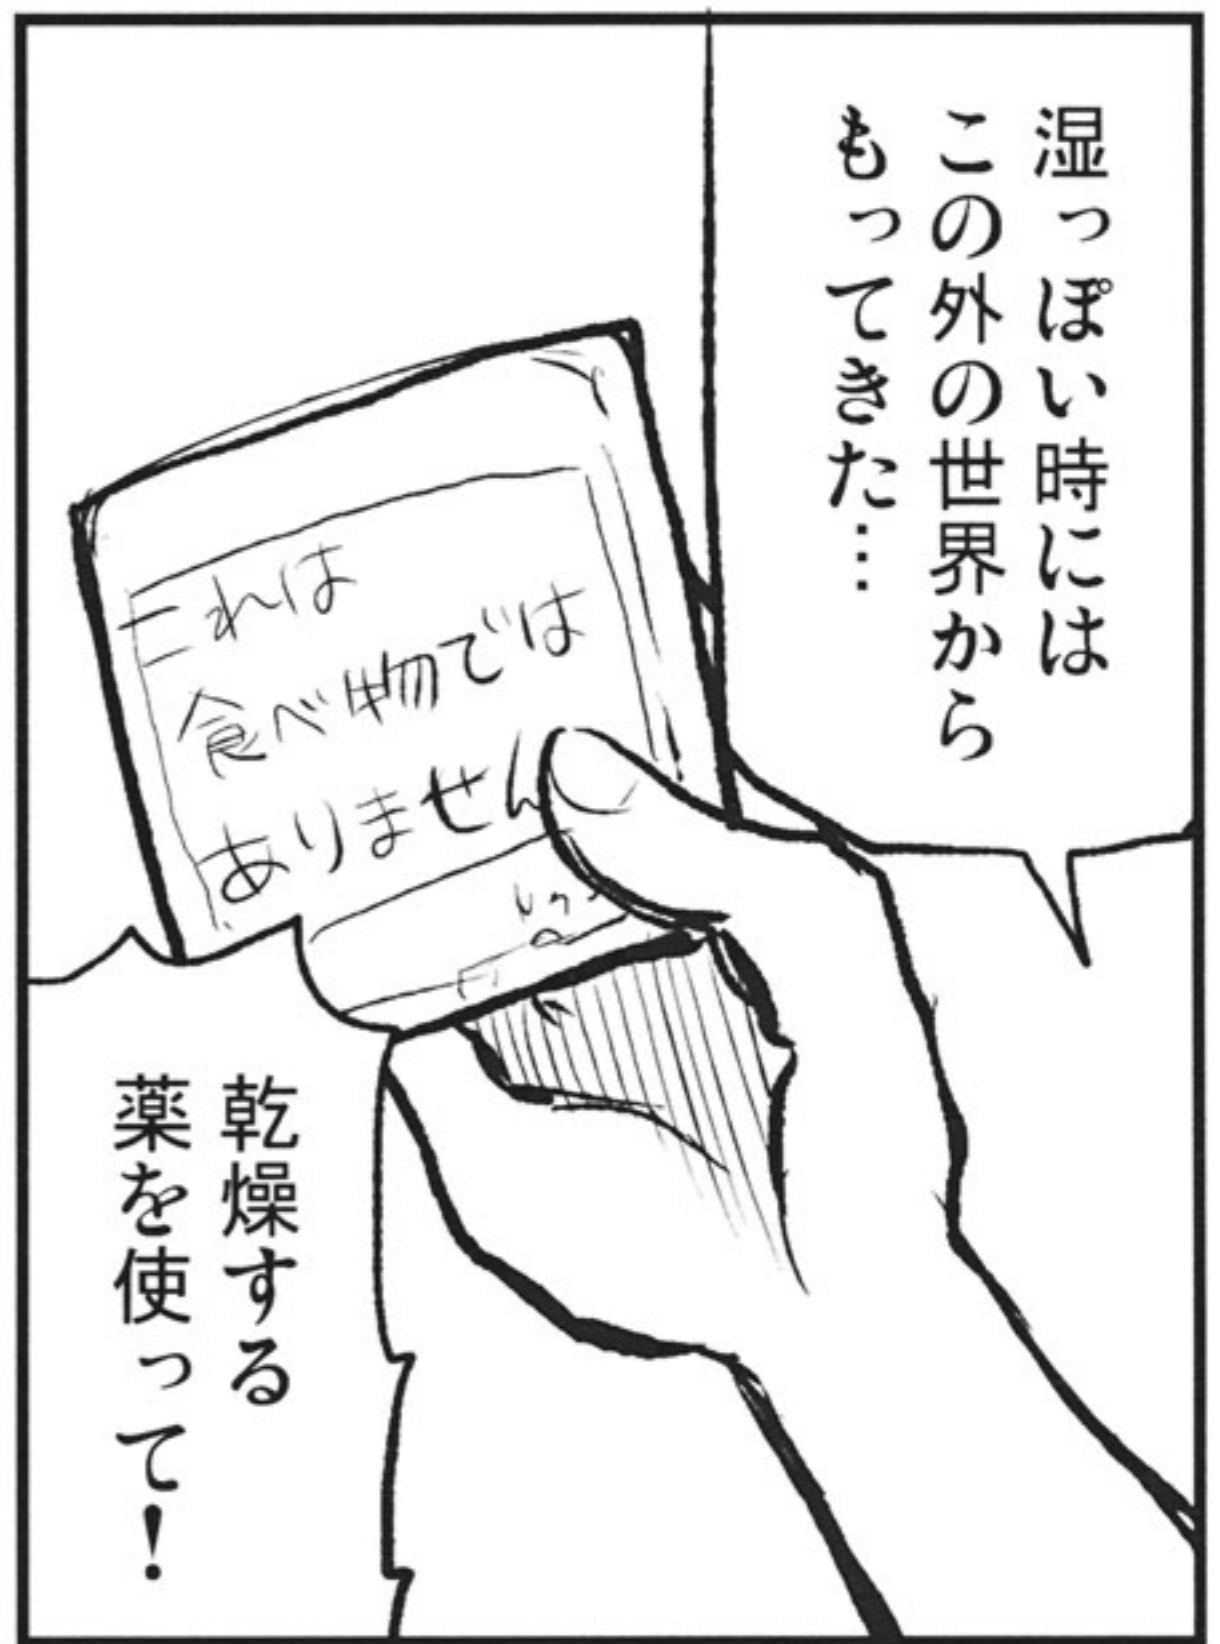 湿っぽい時には
この外の世界から
もってきた…
これは
食べ物では
ありません
乾燥する
薬を使って!